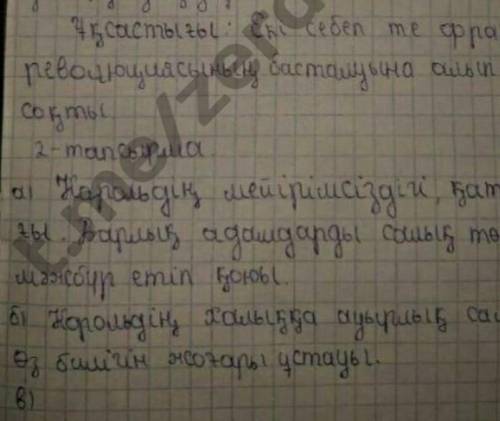 Ұқсастығы: Екі себеп те фра
революциясының басталуына алып
соқты
2-тапсырма.
а) Корольдің мейірімсіздігі, қат
ғы. Барлық адамдарды салық тө
мәжбүр етіп қоюы.
б) Корольдің халыққа ауырлық са
Өз билігін жоғары ұстауы.
в)
t.me/zera